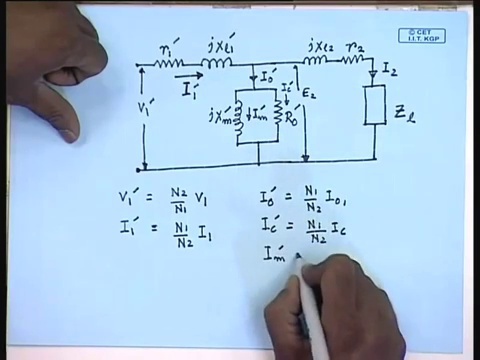 © CET
I.I.T. KGP
r₁′ jxₗ₁′ jxₗ₂ r₂
I₁′ I₀′ I₂
V₁′ jX′ₘ I′ₘ I′c R₀′ E₂ Zₗ
V₁′ = N₂/N₁ V₁
I₀′ = N₁/N₂ I₀₁
I₁′ = N₁/N₂ I₁
I′c = N₁/N₂ Ic
I′ₘ